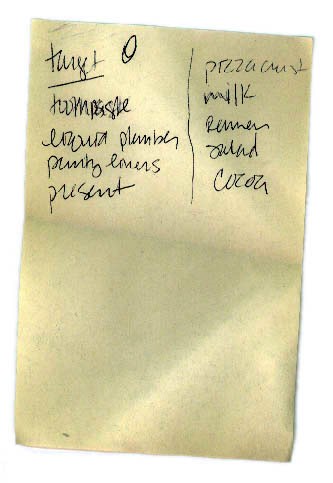 target 0
toothpaste
liquid plumber
panty liners
present
pizza crust
milk
Ramen
salad
cocoa